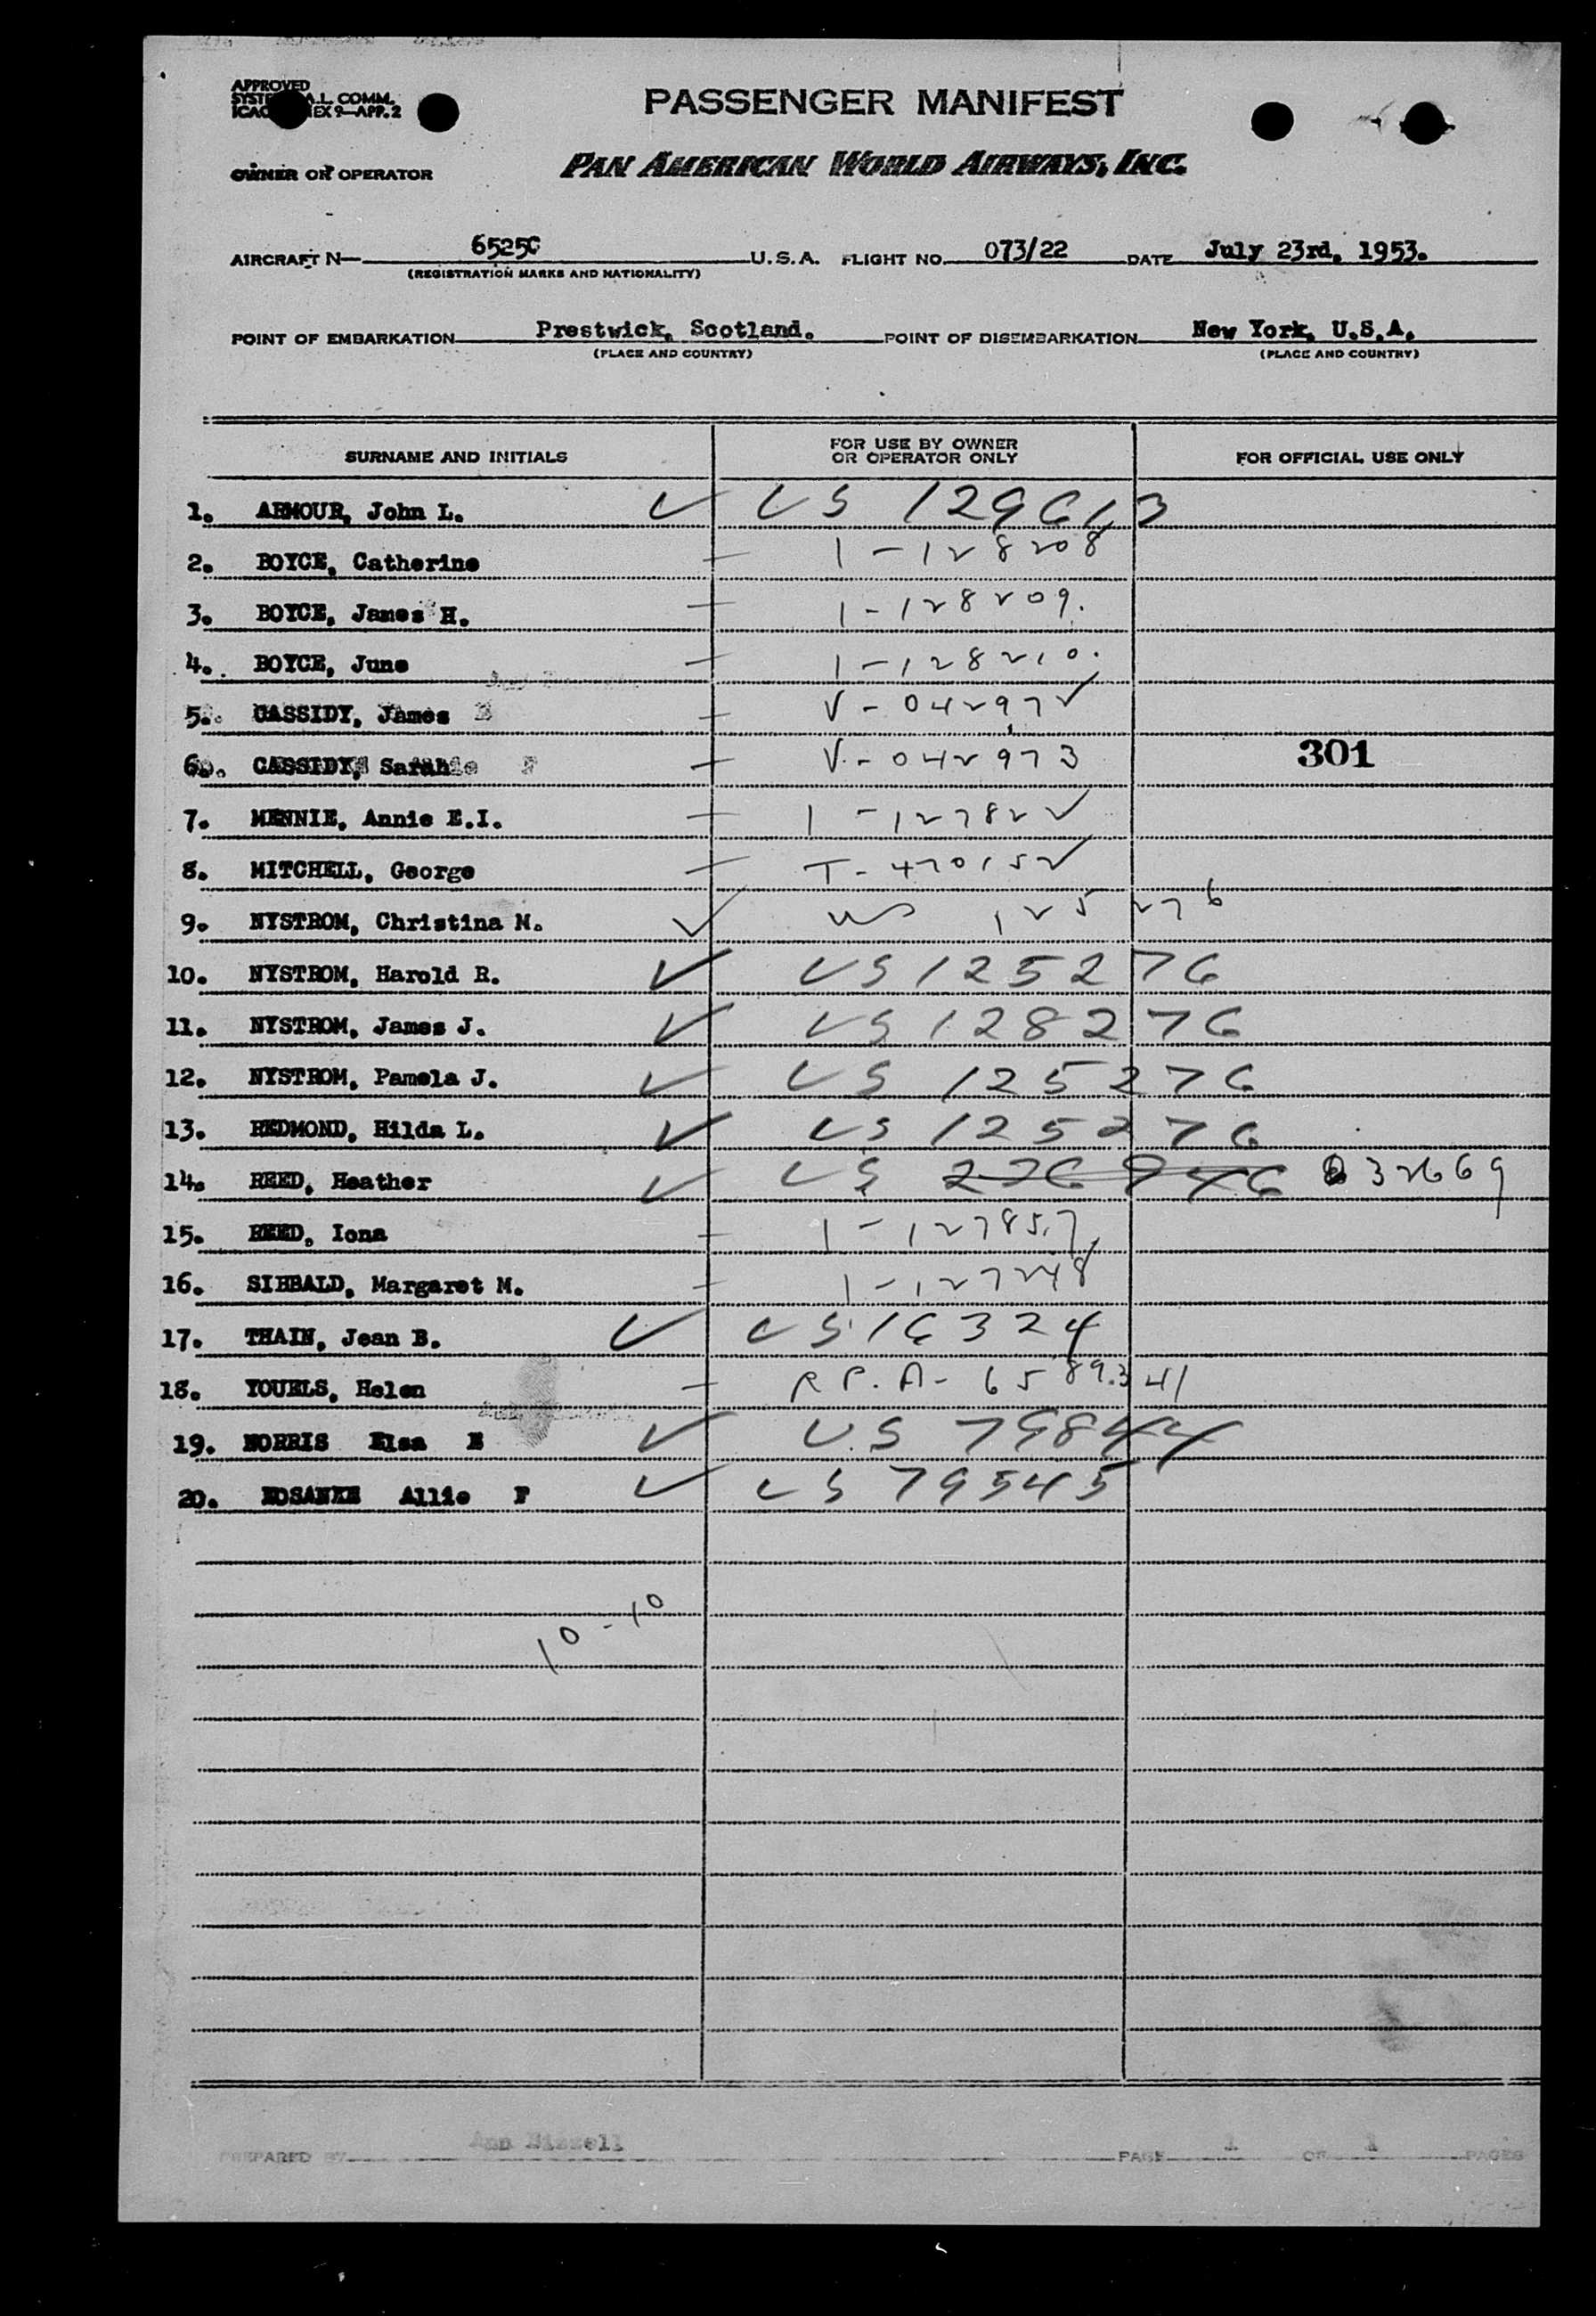 APPROVED
PASSENGER MANIFEST
A.L. COMM.
EX 9—APP. 2
OWNER OR OPERATOR
PAN AMERICAN WORLD AIRWAYS, INC.
AIRCRAFT N— 6525C U.S.A. FLIGHT NO. 073/22 DATE July 23rd, 1953.
(REGISTRATION MARKS AND NATIONALITY)
POINT OF EMBARKATION Prestwick, Scotland. POINT OF DISEMBARKATION New York, U.S.A.
(PLACE AND COUNTRY) (PLACE AND COUNTRY)
SURNAME AND INITIALS FOR USE BY OWNER OR OPERATOR ONLY FOR OFFICIAL USE ONLY
1. ARMOUR, John L. ✓ US 129613
2. BOYCE, Catherine — 1-128208
3. BOYCE, James H. — 1-128209.
4. BOYCE, June — 1-128210.
5. CASSIDY, James — V-042972
6. CASSIDY, Sarah — V-042973 301
7. MENNIE, Annie E.I. — 1-127822
8. MITCHELL, George — T-470152
9. NYSTROM, Christina M. ✓ US 125276
10. NYSTROM, Harold R. ✓ US 125276
11. NYSTROM, James J. ✓ US 128276
12. NYSTROM, Pamela J. ✓ US 125276
13. REDMOND, Hilda L. ✓ US 125276
14. REED, Heather ✓ US 32669
15. REED, Iona — 1-127857
16. SIBBALD, Margaret M. — 1-127248
17. THAIN, Jean B. ✓ US 16324
18. YOUELS, Helen — R P. A- 6589341
19. NORRIS Elsa E ✓ US 79844
20. Allie F ✓ US 79545
10-10
PREPARED BY Ann PAGE 1 OF 1 PAGES